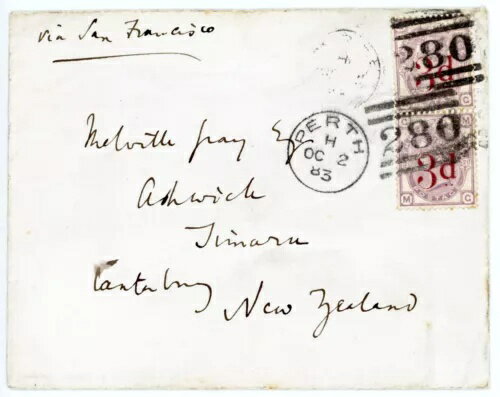 via San Francisco
280
3d
280
3d
M G
PERTH
H
OC 2
83
Melville Gray Esq
Ashwick
Timaru
Canterbury
New Zealand